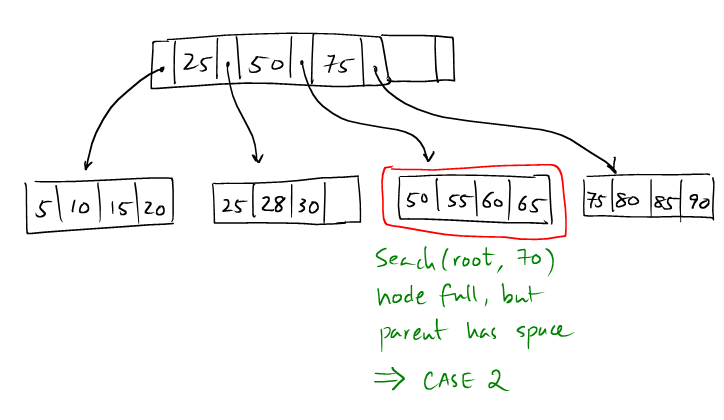 25 50 75
5 10 15 20 25 28 30 50 55 60 65 75 80 85 90
Seach(root, 70)
node full, but
parent has space
⇒ CASE 2